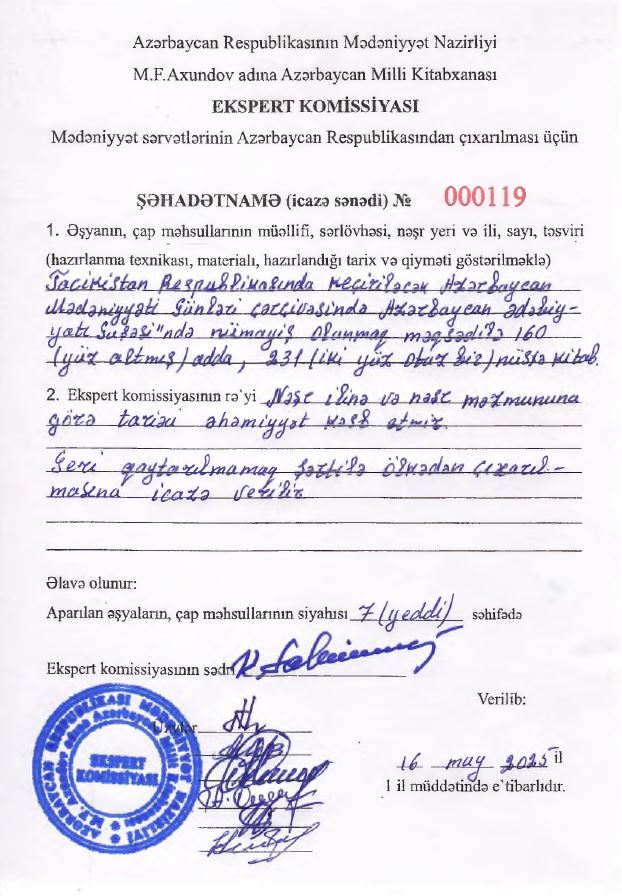 Azərbaycan Respublikasının Mədəniyyət Nazirliyi
M.F.Axundov adına Azərbaycan Milli Kitabxanası
EKSPERT KOMİSSİYASI
Mədəniyyət sərvətlərinin Azərbaycan Respublikasından çıxarılması üçün
ŞƏHADƏTNAMƏ (icazə sənədi) № 000119
1. Əşyanın, çap məhsullarının müəllifi, sərlövhəsi, nəşr yeri və ili, sayı, təsviri
(hazırlanma texnikası, materialı, hazırlandığı tarix və qiyməti göstərilməklə)
Tacikistan Respublikasında keçiriləcək Azərbaycan
Mədəniyyəti Günləri çərçivəsində Azərbaycan ədəbiy-
yatı Guşəsi"ndə nümayiş olunmaq məqsədilə 160
(yüz altmış) adda, 231 (iki yüz otuz bir) nüsxə kitab.
2. Ekspert komissiyasının rə`yi Nəşr ilinə və nəşr məzmununa
görə tarixi əhəmiyyət kəsb etmir.
Geri qaytarılmamaq şərtilə ölkədən çıxarıl-
masına icazə verilir
Əlavə olunur:
Aparılan əşyaların, çap məhsullarının siyahısı 7 (yeddi) səhifədə
Ekspert komissiyasının sədri
Verilib:
Üzvlər
16 may 2025 il
1 il müddətində e`tibarlıdır.
AZƏRBAYCAN RESPUBLİKASI MƏDƏNİYYƏT NAZİRLİYİ
EKSPERT
KOMİSSİYASI